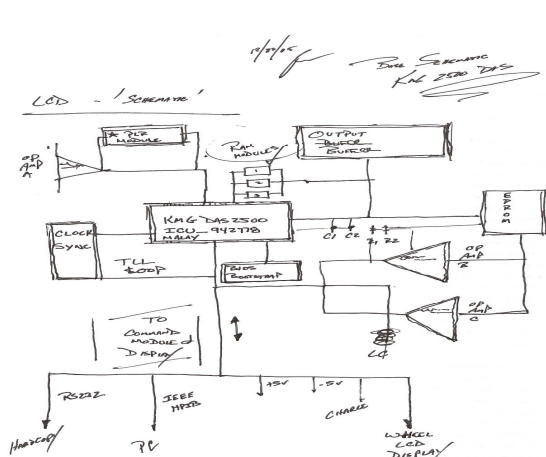 12/20/05
Base Schematic
KMG 2500 DAS
LCD - 'SCHEMATIC'
* PLR
MODULE
RAM
MODULES
1
2
3
OUTPUT
BUFFER
BUFFER
OP
AMP
A
EPROM
KMG DAS2500
ICU - 942778
MALAY
CLOCK
SYNC
TLL
LOOP
BIOS
BOOTSTRAP
C1
C2
R1
R2
OP
AMP
B
OP
AMP
C
LC
TO
COMMAND
MODULE &
DISPLAY
RS232
IEEE
HPIB
+5V
-5V
CHARLE
HARDCOPY
PC
WHEEL
LCD
DISPLAY